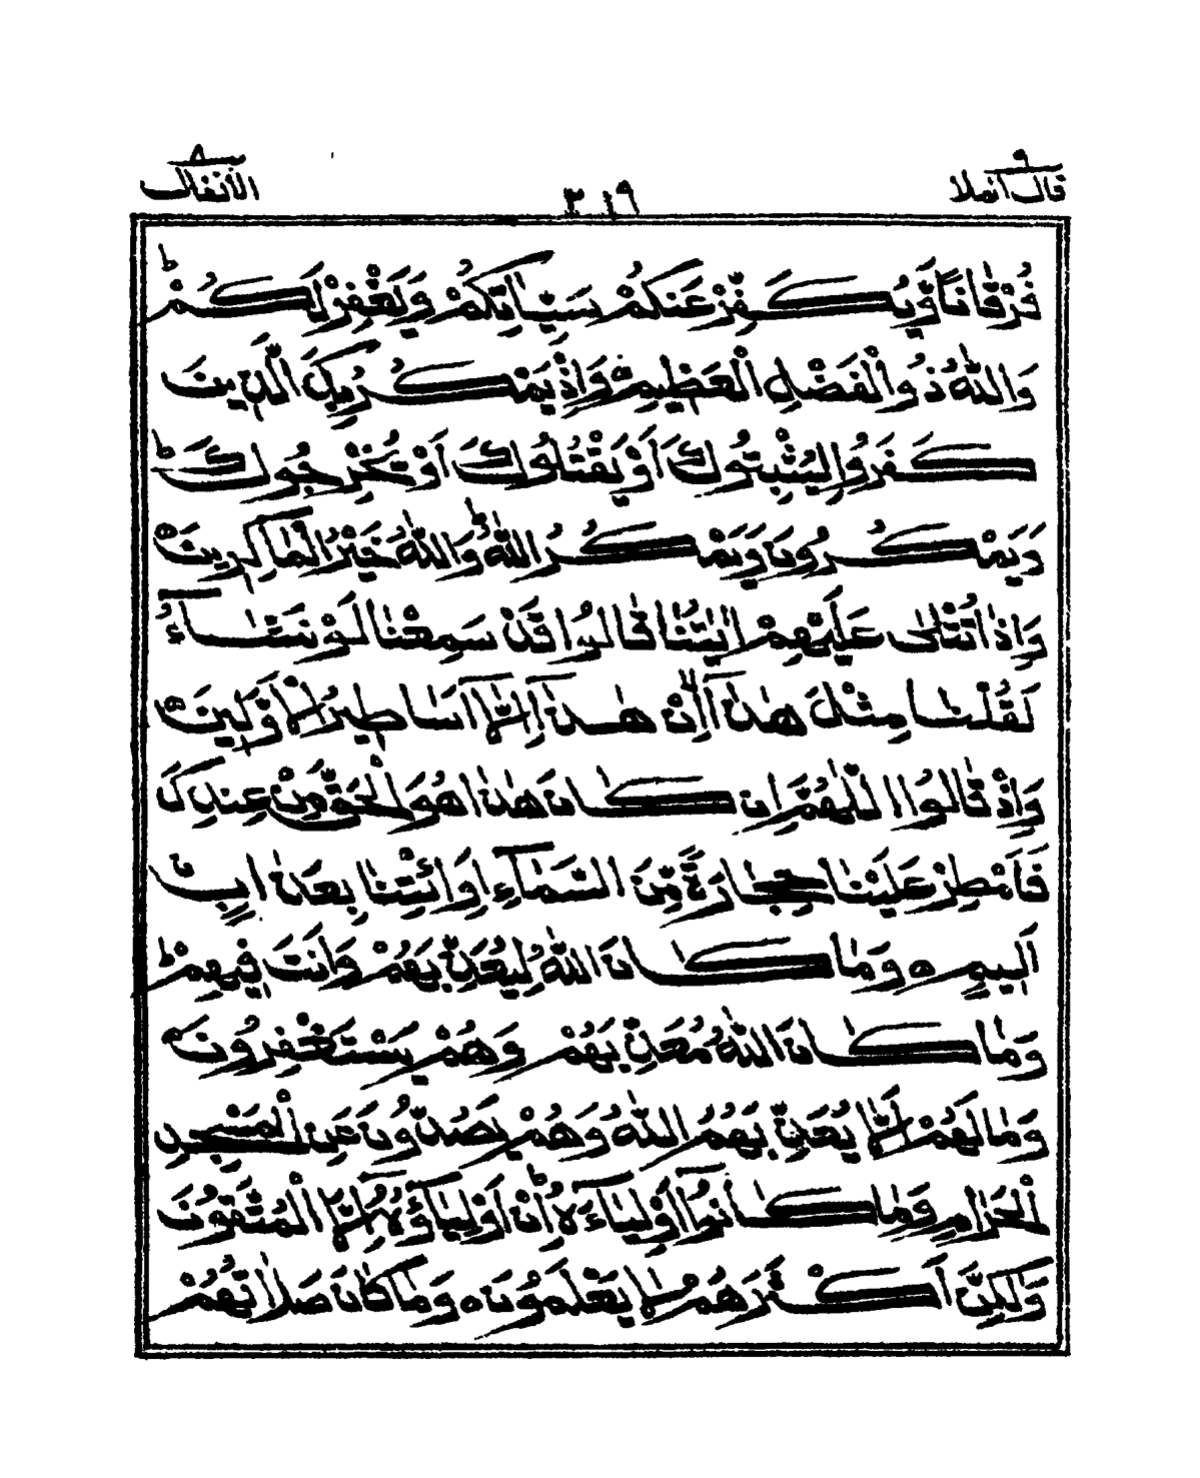 قال الملا ٩
٣١٩
الأنفال ٨
فُرْقَانًا وَّيُكَفِّرْ عَنكُمْ سَيِّاٰتِكُمْ وَيَغْفِرْ لَكُمْ ؕ
وَاللّٰهُ ذُو الْفَضْلِ الْعَظِيمِ ۝ وَاِذْ يَمْكُرُ بِكَ الَّذِينَ
كَفَرُوا لِيُثْبِتُوكَ اَوْ يَقْتُلُوكَ اَوْ يُخْرِجُوكَ ؕ
وَيَمْكُرُونَ وَيَمْكُرُ اللّٰهُ ؕ وَاللّٰهُ خَيْرُ الْمَاكِرِينَ ۝
وَاِذَا تُتْلٰى عَلَيْهِمْ اٰيٰتُنَا قَالُوا قَدْ سَمِعْنَا لَوْ نَشَآءُ
لَقُلْنَا مِثْلَ هٰذَآ اِنْ هٰذَآ اِلَّآ اَسَاطِيرُ الْاَوَّلِينَ ۝
وَاِذْ قَالُوا اللّٰهُمَّ اِن كَانَ هٰذَا هُوَ الْحَقَّ مِنْ عِندِكَ
فَاَمْطِرْ عَلَيْنَا حِجَارَةً مِّنَ السَّمَآءِ اَوِ ائْتِنَا بِعَذَابٍ
اَلِيمٍ ۝ وَمَا كَانَ اللّٰهُ لِيُعَذِّبَهُمْ وَاَنتَ فِيهِمْ ؕ
وَمَا كَانَ اللّٰهُ مُعَذِّبَهُمْ وَهُمْ يَسْتَغْفِرُونَ ۝
وَمَا لَهُمْ اَلَّا يُعَذِّبَهُمُ اللّٰهُ وَهُمْ يَصُدُّونَ عَنِ الْمَسْجِدِ
الْحَرَامِ وَمَا كَانُوٓا اَوْلِيَآءَهُ ؕ اِنْ اَوْلِيَآؤُهُٓ اِلَّا الْمُتَّقُونَ
وَلٰكِنَّ اَكْثَرَهُمْ لَا يَعْلَمُونَ ۝ وَمَا كَانَ صَلَاتُهُمْ